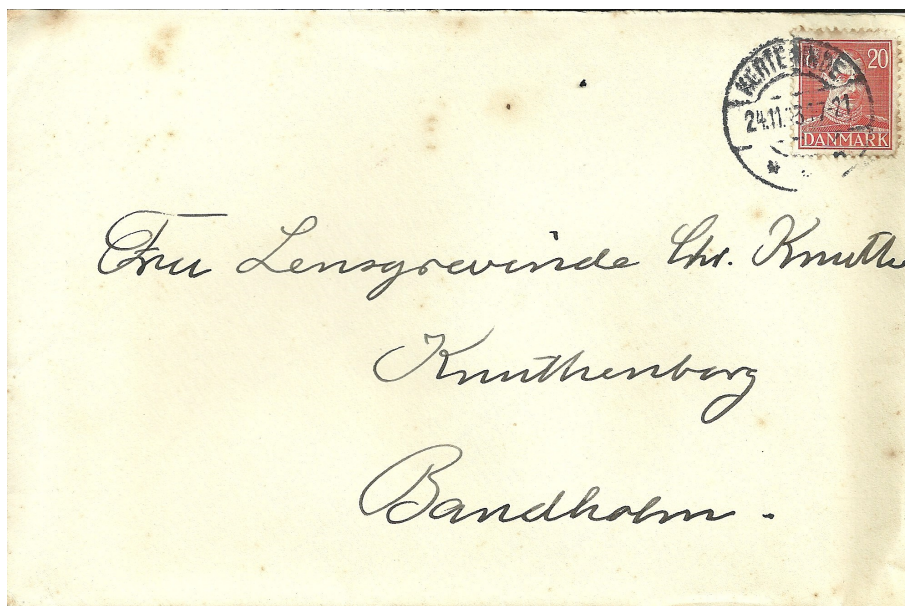 KERTEMINDE
20
24.11.43.17-21
DANMARK
Fru Lensgrevinde Chr. Knuth
Knuthenborg
Bandholm.